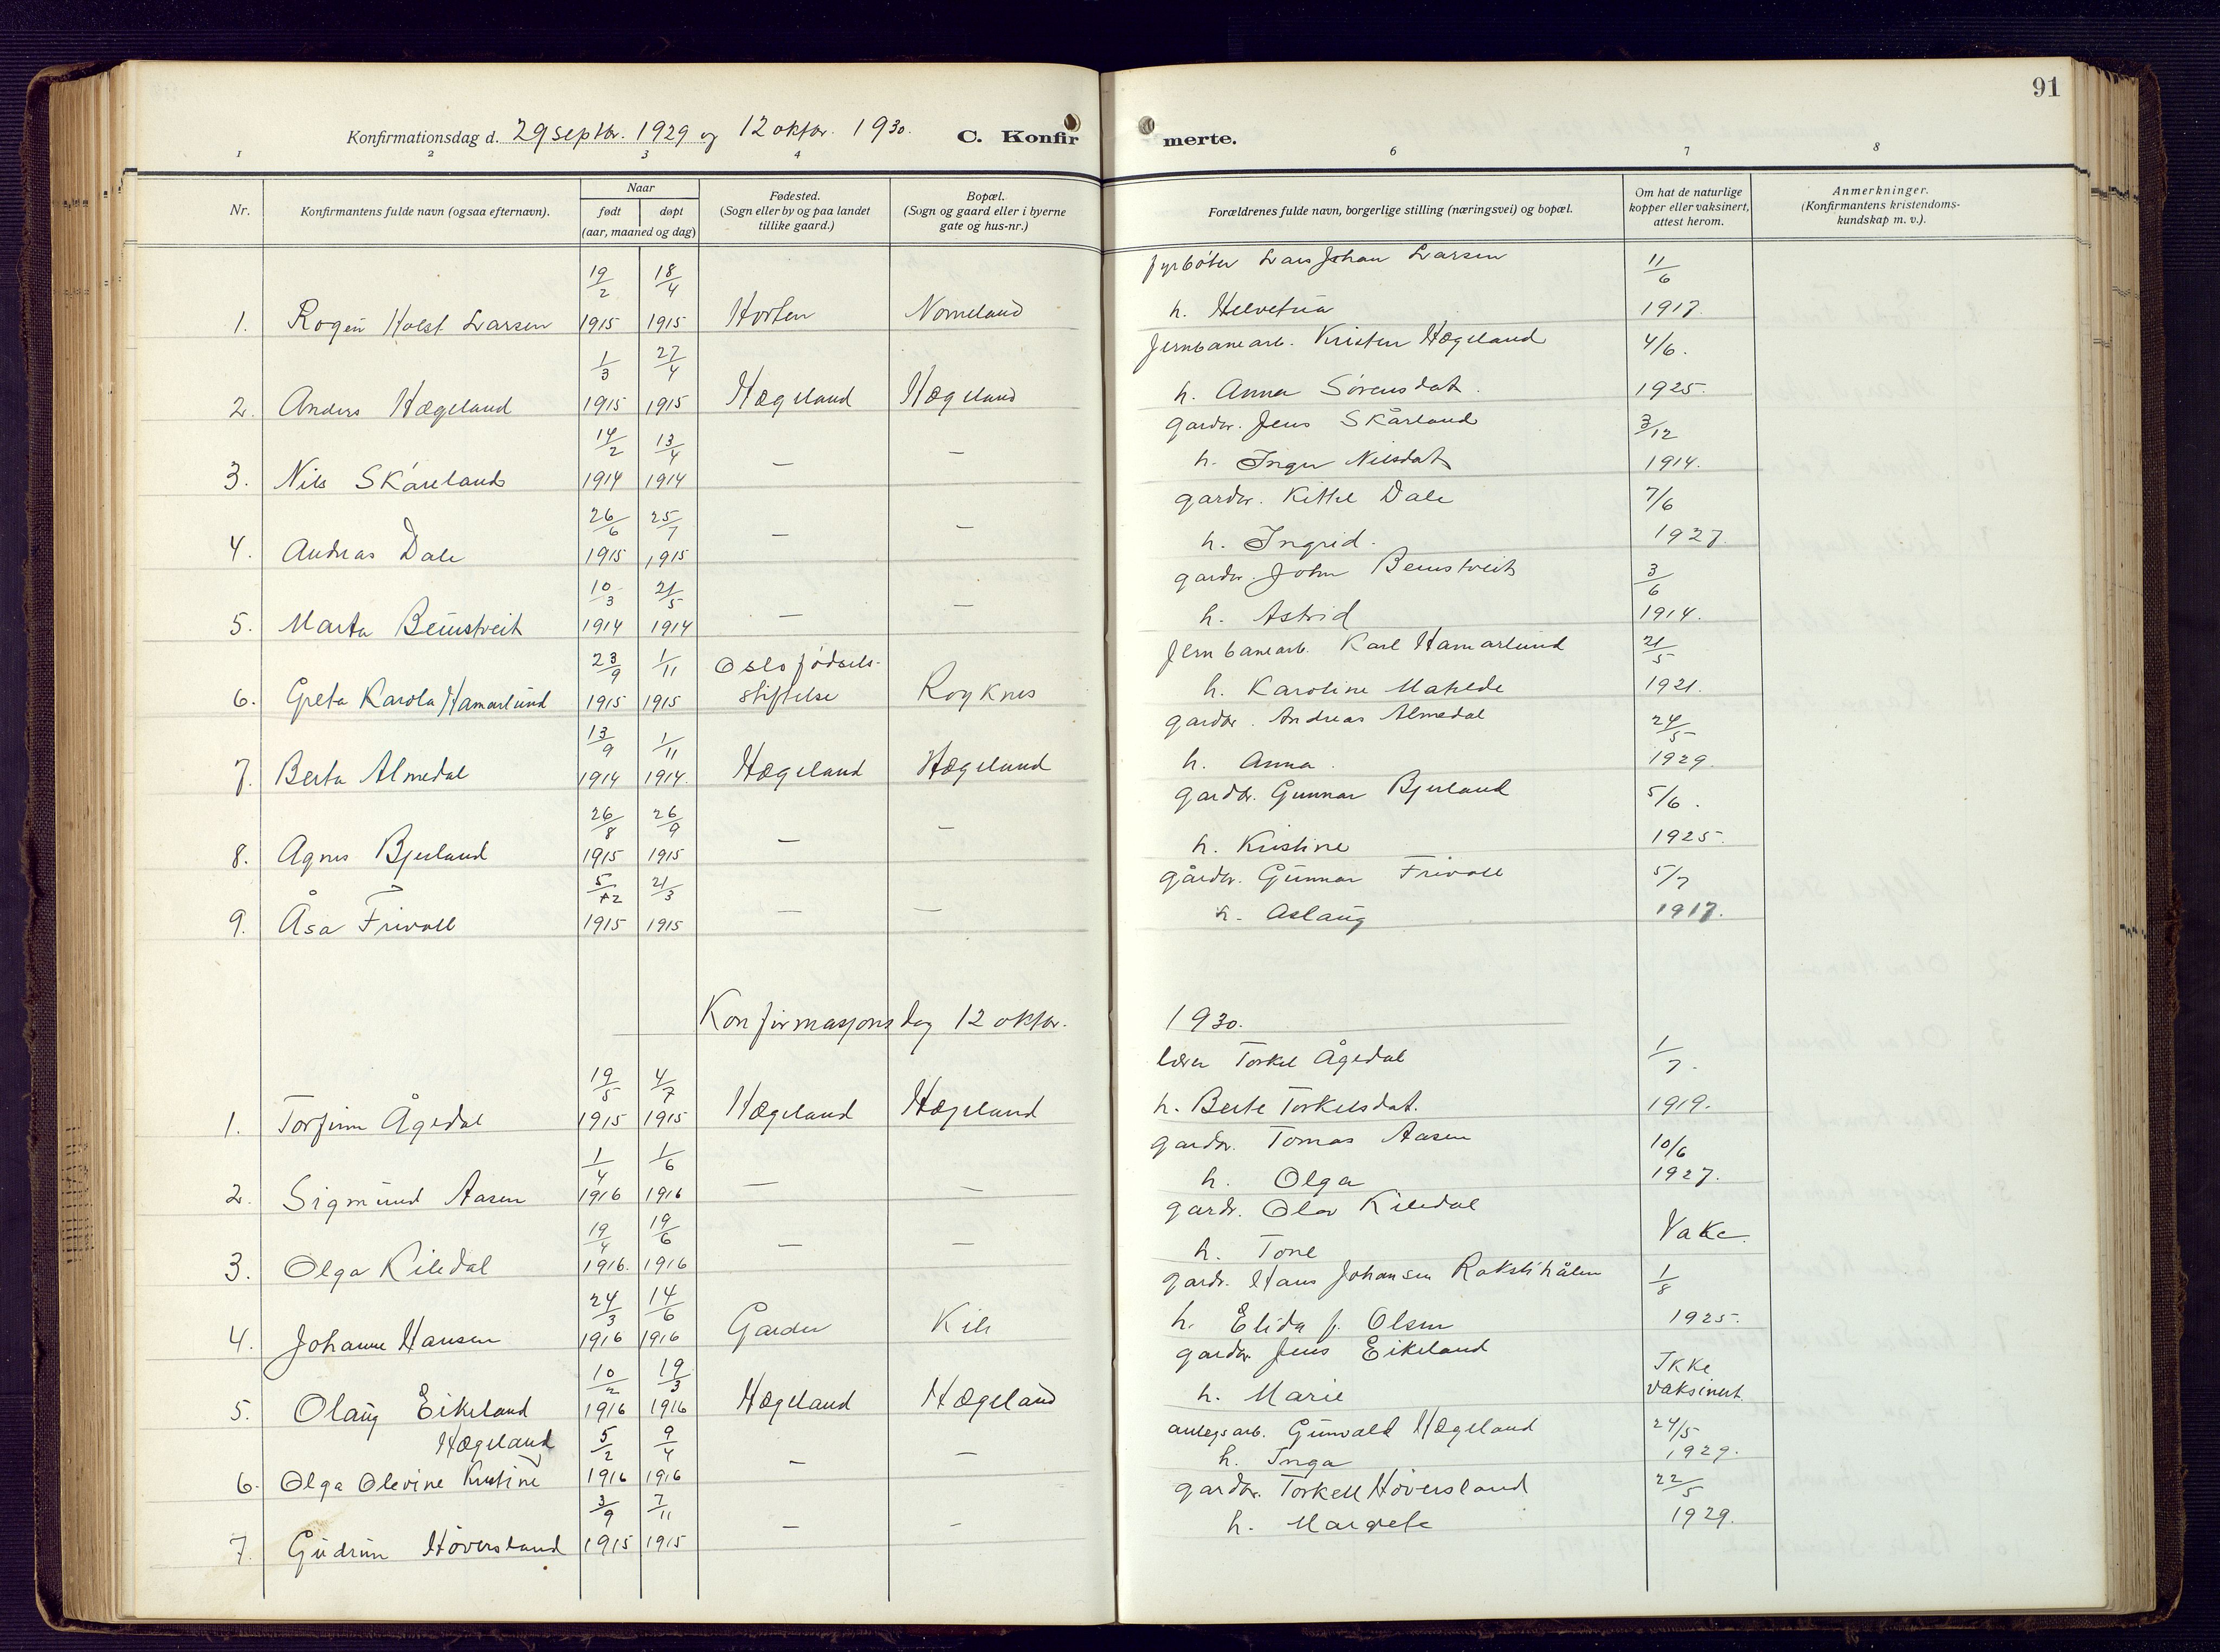 91
Konfirmationsdag d. 29 septbr. 1929 og 12 oktbr. 1930. C. Konfirmerte.
1 2 3 4 6 7 8
Nr. Konfirmantens fulde navn (ogsaa efternavn). Naar født døpt (aar, maaned og dag) Fødested. (Sogn eller by og paa landet tillike gaard.) Bopæl. (Sogn og gaard eller i byerne gate og hus-nr.) Forældrenes fulde navn, borgerlige stilling (næringsvei) og bopæl. Om hat de naturlige kopper eller vaksinert, attest herom. Anmerkninger. (Konfirmantens kristendomskundskap m. v.).
19/2 18/4 fyrbøter Lars Johan Larsen 11/6
1. Rogen Holst Larsen 1915 1915 Horten Nomeland h. Helvetia 1917.
1/3 27/4 Jernbanearb. Kristen Hægeland 4/6.
2. Anders Hægeland 1915 1915 Hægeland Hægeland h. Anna Sørensdat. 1925.
14/2 13/4 gardbr. Jens Skårland 3/12
3. Nils Skåreland 1914 1914 — — h. Inger Nilsdat. 1914.
26/6 25/7 gardbr. Kittel Dale 7/6
4. Andreas Dale 1915 1915 — — h. Ingrid. 1927.
10/3 21/5 gardbr. John Beinstveit 3/6
5. Marta Beinstveit 1914 1914 — — h. Astrid 1914.
23/9 1/11 Oslo fødsels- Jernbanearb. Karl Hamarlund 21/5
6. Greta Karola Hamarlund 1915 1915 stiftelse Røyknes h. Karoline Matilde 1921.
13/9 1/11 gardbr. Andreas Almedal 24/5
7. Berta Almedal 1914 1914. Hægeland Hægeland h. Anna. 1929.
26/8 26/9 gardbr. Gunnar Bjerland 5/6.
8. Agnes Bjerland 1915 1915 — — h. Kristine 1925.
5/2 21/3 gårdbr. Gunnar Frivoll 5/7
9. Åsa Frivoll 1915 1915 — — h. Aslaug 1917.
Konfirmasjonsdag 12 oktbr. 1930.
19/5 4/7 lærer Torkel Ågedal 1/7.
1. Torfinn Ågedal 1915 1915 Hægeland Hægeland h. Berte Torkelsdat. 1919.
1/4 1/6 gardbr. Tomas Aasen 10/6
2. Sigmund Aasen 1916 1916 — — h. Olga 1927.
19/4 19/6 gardbr. Olav Kiledal
3. Olga Kiledal 1916. 1916 — — h. Tone Vakc.
24/3 14/6 gardbr. Hans Johansen Rakstihålen 1/8
4. Johanne Hansen 1916 1916 Garder Kile h. Elida f. Olsen 1925.
10/2 19/3 gardbr. Jens Eikeland Ikke
5. Olaug Eikeland 1916 1916 Hægeland Hægeland h. Marie vaksinert.
Hægeland 5/2 9/4 anlegsarb. Gunvald Hægeland 24/5
6. Olga Olevine Kristine 1916 1916 — — h. Inga 1929.
3/9 7/11 gardbr. Torkell Høversland 22/5
7. Gudrun Høversland 1915 1915 — — h. Margrete 1929.